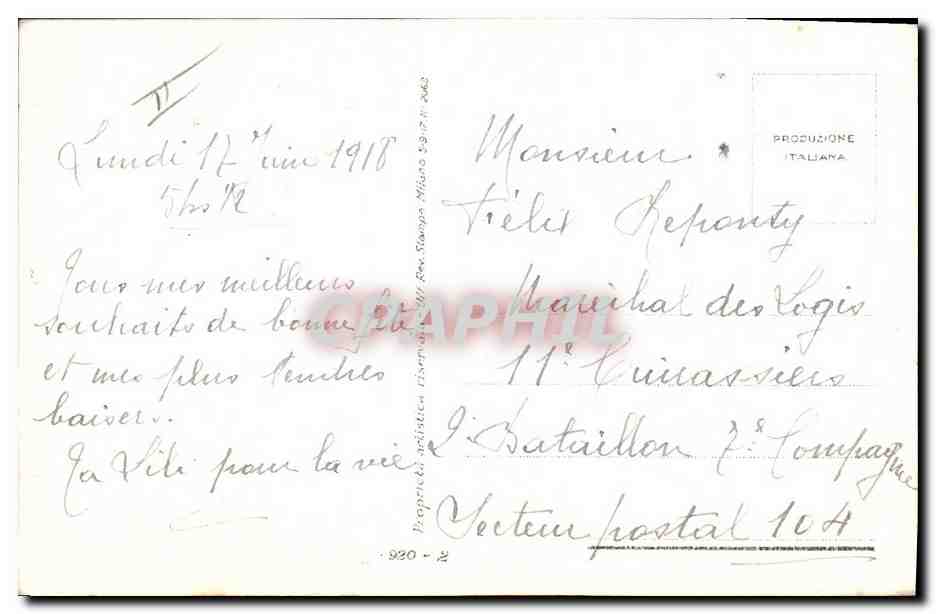 II
Lundi 17 Juin 1918
5hs 1/2
Tous mes meilleurs
souhaits de bonne fête
et mes plus tendres
baisers..
Ta Lili pour la vie
Proprietà artistica riservata Rev. Stampa Milano
920 - 2
PRODUZIONE
ITALIANA
Monsieur
Félix Reponty
Maréchal des Logis
11e Cuirassiers
2e Bataillon 7e Compagnie
Secteur postal 104
CPAPHIL